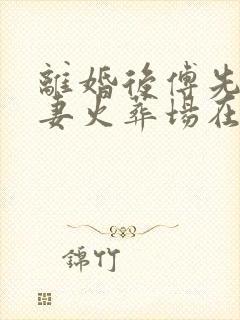 離婚後傅先
妻火葬場在
錦竹